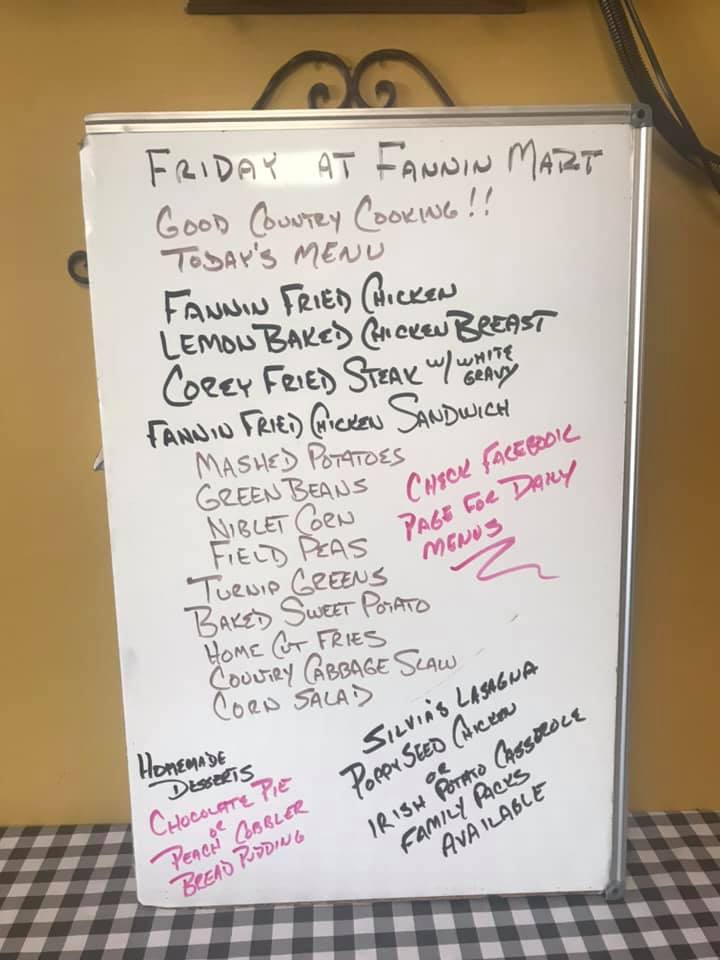 FRIDAY AT FANNIN MART
GOOD COUNTRY COOKING!!
TODAY'S MENU
FANNIN FRIED CHICKEN
LEMON BAKED CHICKEN BREAST
COREY FRIED STEAK W/ WHITE GRAVY
FANNIN FRIED CHICKEN SANDWICH
MASHED POTATOES
GREEN BEANS
NIBLET CORN
FIELD PEAS
TURNIP GREENS
BAKED SWEET POTATO
HOME CUT FRIES
COUNTRY CABBAGE SLAW
CORN SALAD
CHECK FACEBOOK
PAGE FOR DAILY
MENUS
HOMEMADE
DESSERTS
CHOCOLATE PIE
OR
PEACH COBBLER
BREAD PUDDING
SILVIA'S LASAGNA
POPPY SEED CHICKEN
OR
IRISH POTATO CASSEROLE
FAMILY PACKS
AVAILABLE